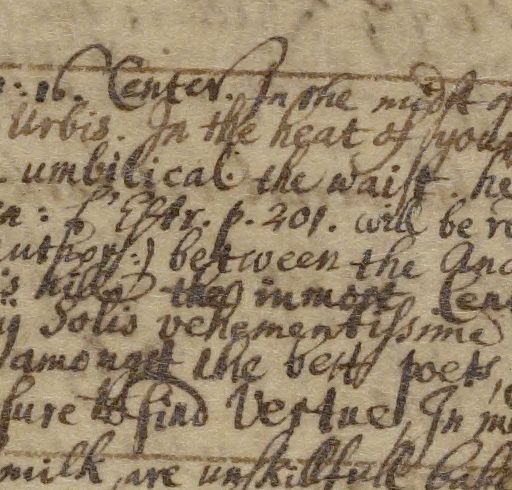 : 16. Center. In the midst of
Urbis. In the heat of your
umbilical the waist. he
: L'Estr. p. 201. will be re
Authors:) between the Anc
is hills the inmost Cen
Solis vehementissime
amongst the best poets,
sure to find Vertue, In m
milk, are unskillfull bab